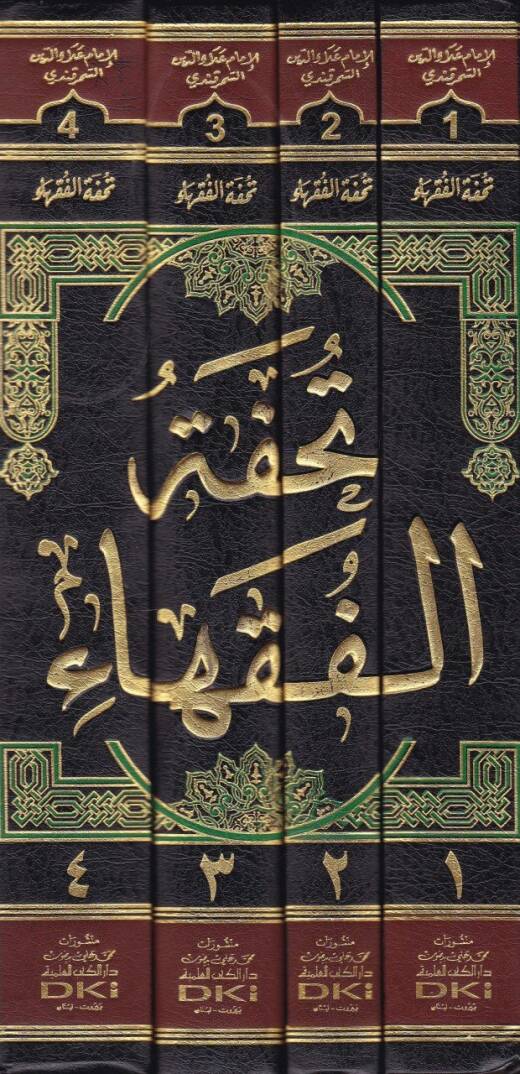 الإمام علاء الدين
السمرقندي
1
تحفة الفقهاء
الإمام علاء الدين
السمرقندي
2
تحفة الفقهاء
الإمام علاء الدين
السمرقندي
3
تحفة الفقهاء
الإمام علاء الدين
السمرقندي
4
تحفة الفقهاء
تُحْفَةُ
الفُقَهَاءِ
١
٢
٣
٤
منشورات
محمد علي بيضون
دار الكتب العلمية
DKi
بيروت - لبنان
منشورات
محمد علي بيضون
دار الكتب العلمية
DKi
بيروت - لبنان
منشورات
محمد علي بيضون
دار الكتب العلمية
DKi
بيروت - لبنان
منشورات
محمد علي بيضون
دار الكتب العلمية
DKi
بيروت - لبنان